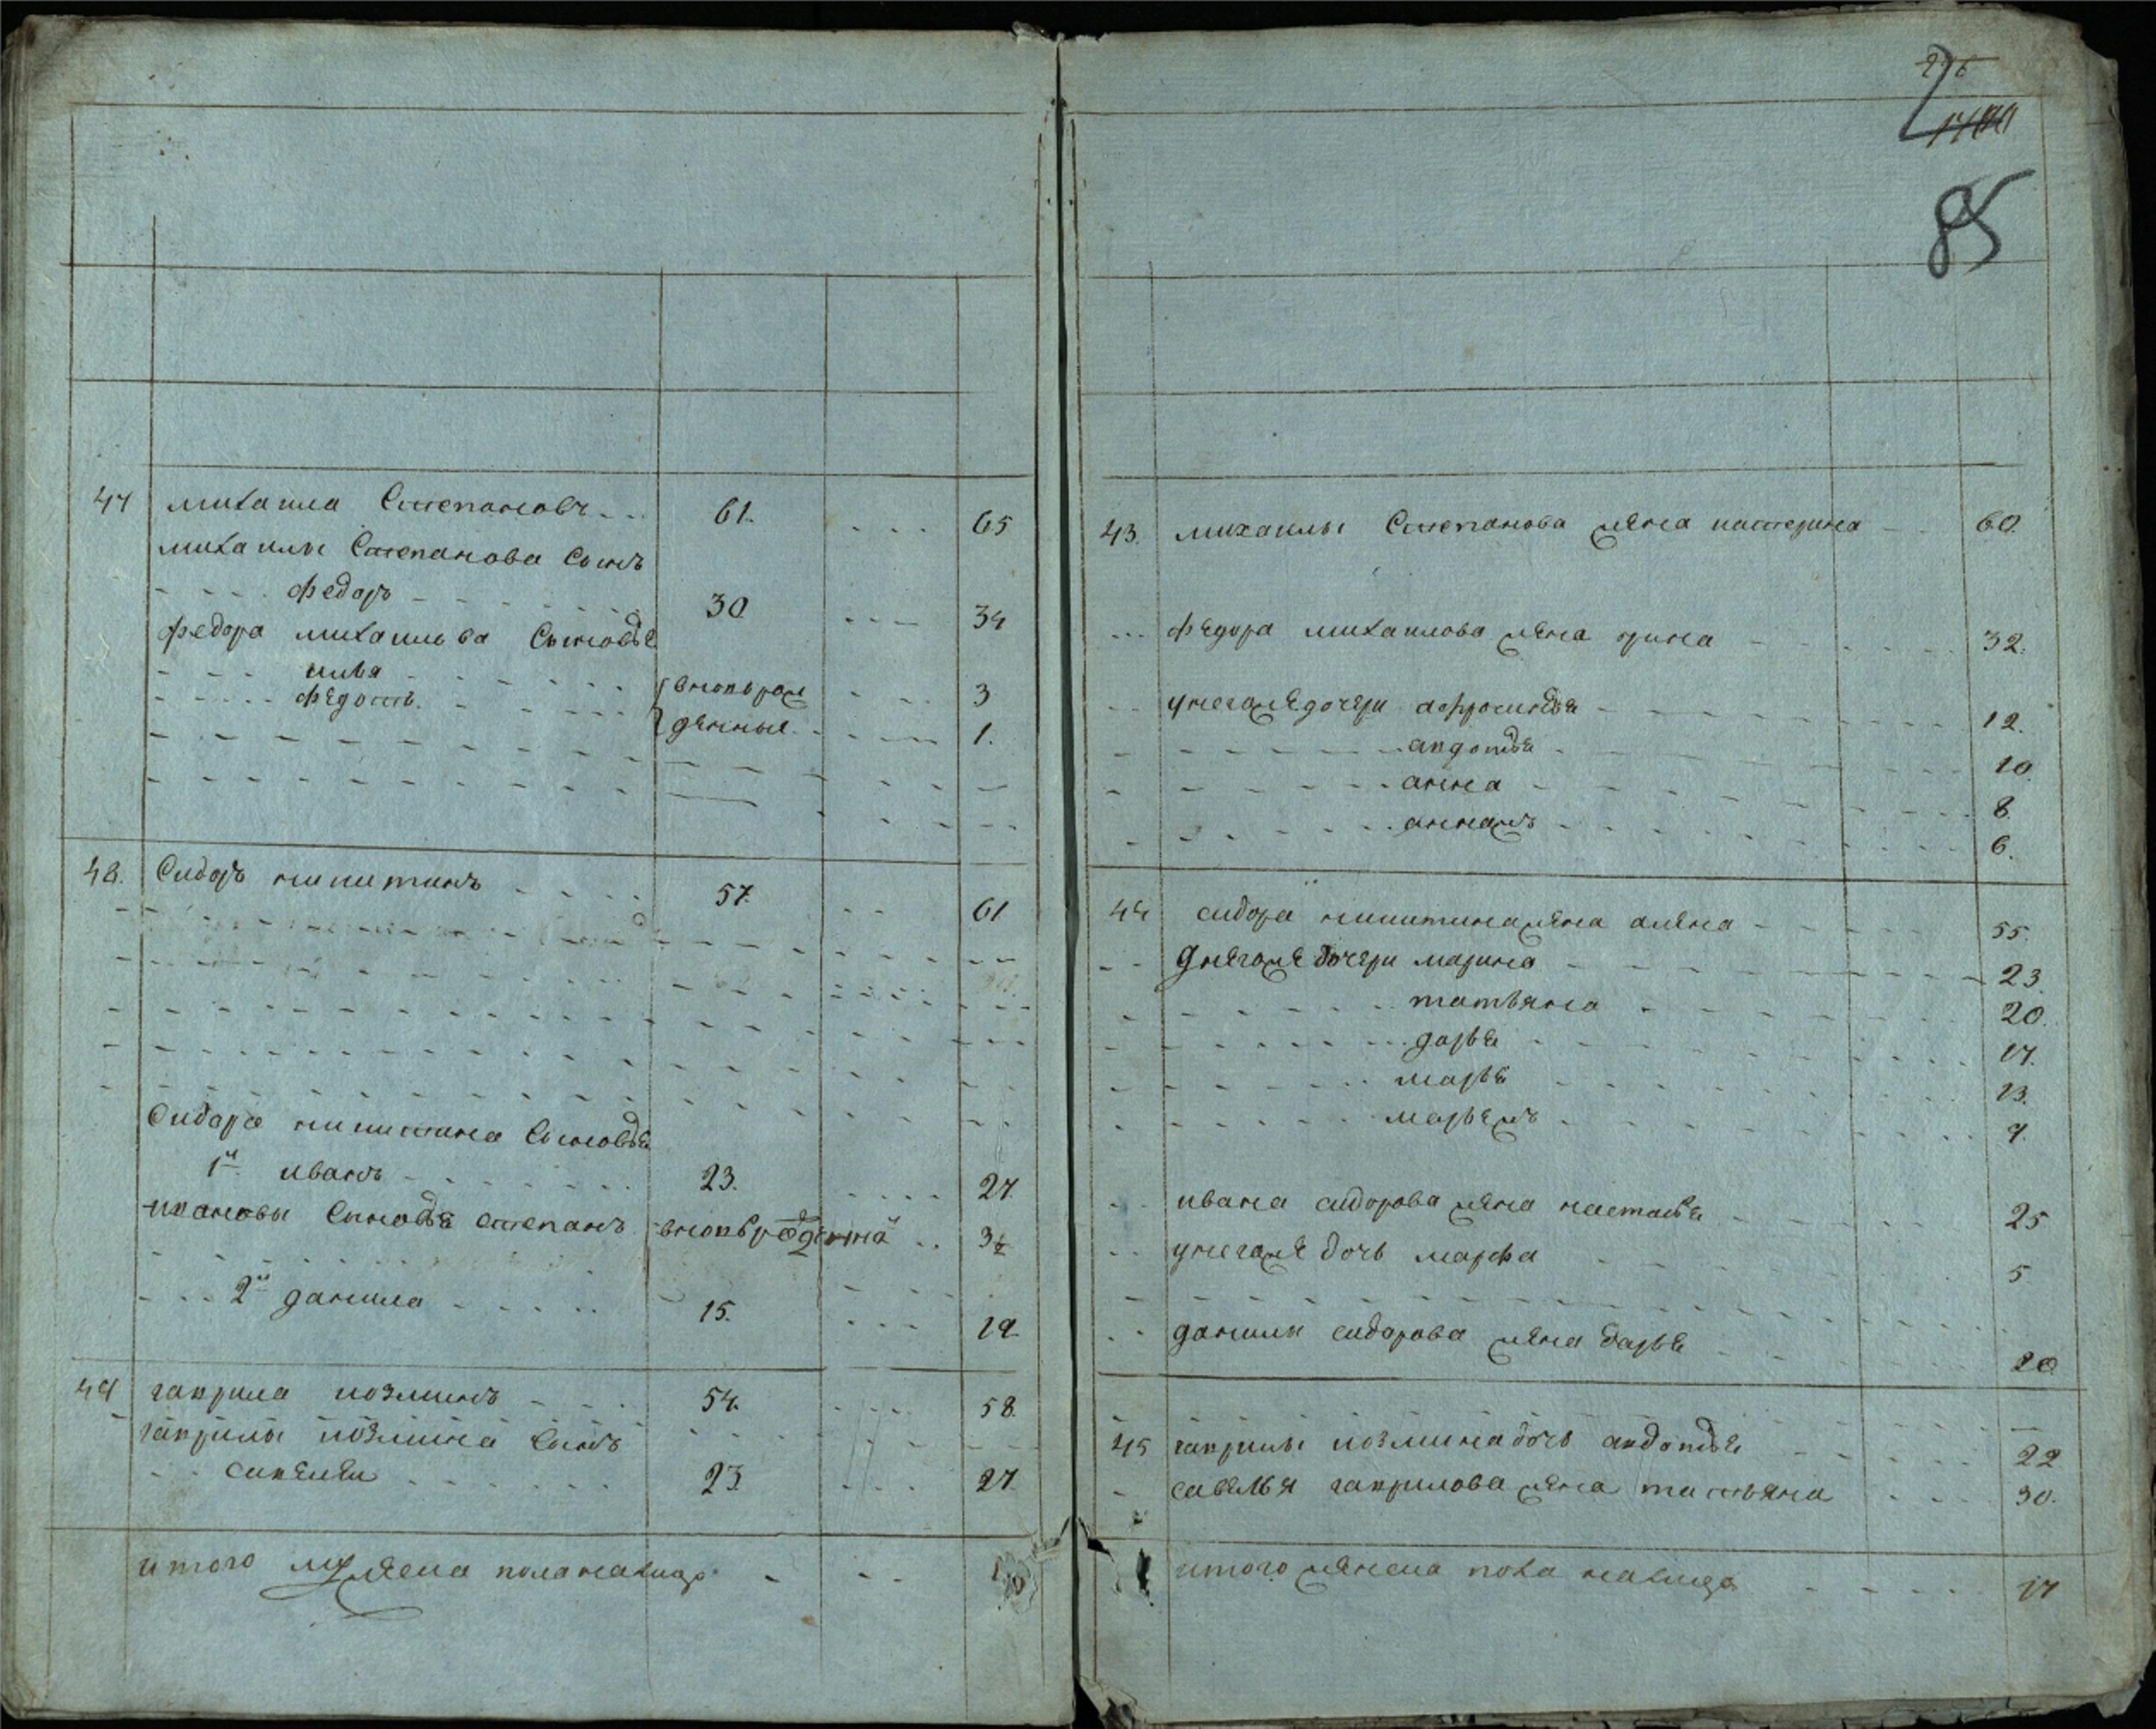 47 михаила Степановъ 61. 65
михаилы Степанова Сынъ
федоръ 30 34
федора михаилова Сыновья
илья вновьрож 3
федотъ. денные. 1.
48. Сидоръ никитинъ 57. 61
Сидара никитина Сыновья
1й иванъ 23. 27.
ивановы Сыновья степанъ вновьрожденный 3½
2й данила 15. 19.
49 гаврила козминъ 54. 58.
гаврилы козмина Сынъ
савелеи 23. 27.
итого мужеска поланалицо
85
43. михаилы Степанова жена катерина 60.
федора михаилова жена орина 32.
унегожедочери афросинья 12.
авдотья 10.
анна 8.
аннажъ 6.
44 сидора никитинажена алена 55.
унегоже дочери марина 23.
татьяна 20.
дарья 17.
марья 13.
марьежъ 9.
ивана сидорова жена настасья 25
унегоже дочь марфа 5
данилы сидорова жена дарья 20
45 гаврилы козминадочь авдотья 22
савелья гаврилова жена татьяна 30.
итого женска пола налицо 17